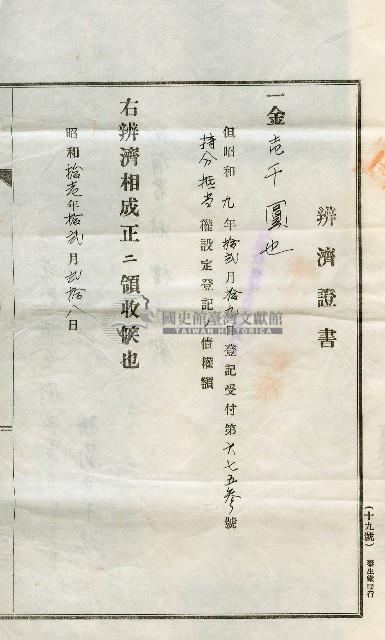 辨濟證書
一金壱千圓也
但昭和九年拾弐月拾九日登記受付第六七五参號
持分抵当權設定登記ノ債權額
右辨濟相成正ニ領收候也
昭和拾壱年拾弐月弐拾八日
(十九號)
國史館臺灣文獻館
TAIWAN HISTORICA